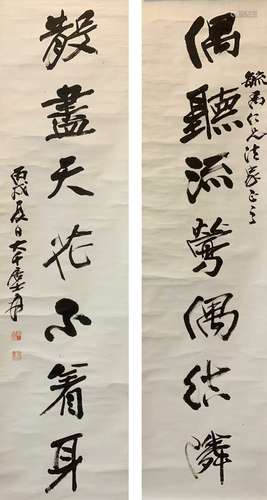 毓西仁兄法家正之
偶聽流鶯偶結隣
散盡天花不着身
丙戌夏日大千張爰